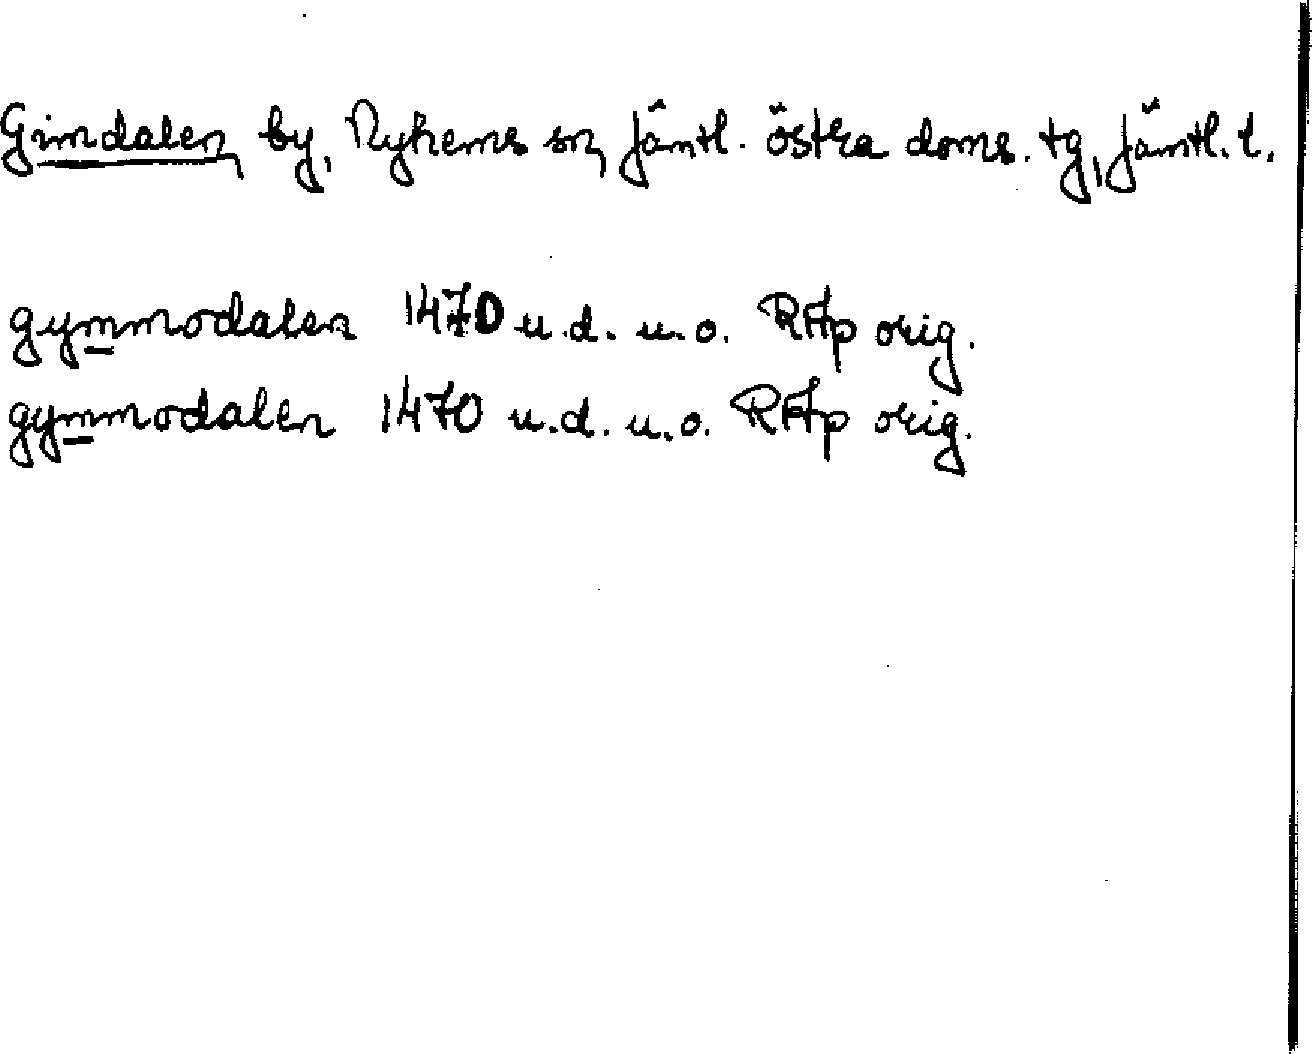 Gimdalen, by, Nyhems sn, Jämtl. östra doms. tg, Jämtl. l.
gymmodalen 1470 u.d. u.o. RAp orig.
gymmodalen 1470 u.d. u.o. RAp orig.